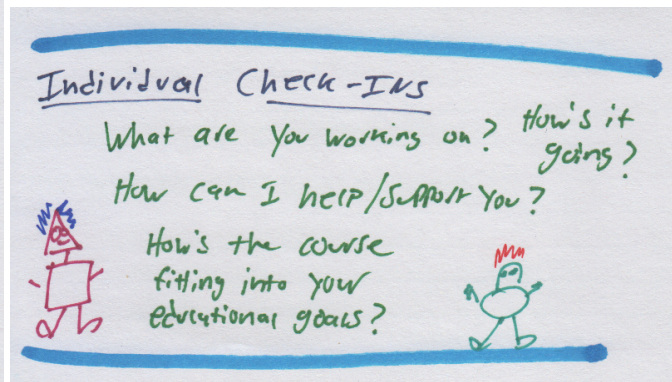 Individual Check-Ins
What are you working on? How's it
going?
How can I help/support you?
How's the course
fitting into your
educational goals?